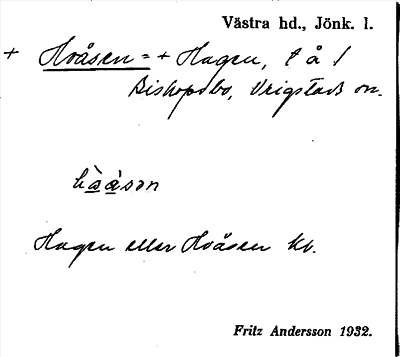 Västra hd., Jönk. l.
+ Hvåsen = + Hagen, t å /
Biskopsbo, Vrigstads sn.
Hagen eller Hvåsen kv.
Fritz Andersson 1932.